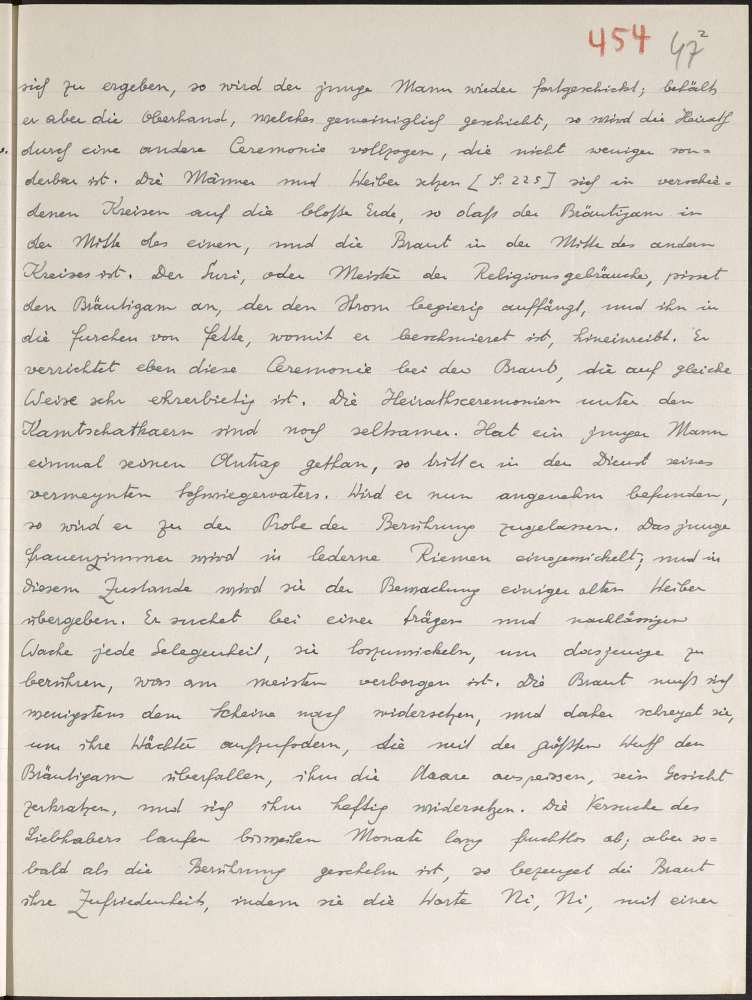 454 47²
sich zu ergeben, so wird der junge Mann wieder fortgeschickt; behält
er aber die Oberhand, welches gemeiniglich geschieht, so wird die Heirath
durch eine andere Ceremonie vollzogen, die nicht weniger son=
derbar ist. Die Männer und Weiber setzen [S. 225] sich in verschie=
denen Kreisen auf die bloße Erde, so daß der Bräutigam in
der Mitte des einen, und die Braut in der Mitte des andern
Kreises ist. Der Suri, oder Meister der Religionsgebräuche, pisset
den Bräutigam an, der den Strom begierig auffängt, und ihn in
die furchen von fette, womit er beschmieret ist, hineinreibt. Er
verrichtet eben diese Ceremonie bei der Braut, die auf gleiche
Weise sehr ehrerbietig ist. Die Heirathsceremonien unter den
Kamtschatkaern sind noch seltsamer. Hat ein junger Mann
einmal seinen Antrag gethan, so tritt er in den Dienst seines
vermeynten Schwiegervaters. Wird er nun angenehm befunden,
so wird er zu der Probe der Berührung zugelassen. Das junge
frauenzimmer wird in lederne Riemen eingewickelt; und in
diesem Zustande wird sie der Bewachung einiger alten Weiber
übergeben. Er suchet bei einer trägen und nachlässigen
Wache jede Gelegenheit, sie loszuwickeln, um dasjenige zu
berühren, was am meisten verborgen ist. Die Braut muß sich
wenigstens dem Scheine nach widersetzen, und daher schreyet sie,
um ihre Wächter aufzufodern, die mit der größten Wuth den
Bräutigam überfallen, ihm die Haare ausreissen, sein Gesicht
zerkratzen, und sich ihm heftig widersetzen. Die Versuche des
Liebhabers laufen bisweilen Monate lang fruchtlos ab; aber so=
bald als die Berührung geschehn ist, so bezeuget die Braut
ihre Zufriedenheit, indem sie die Worte Ni, Ni, mit einer